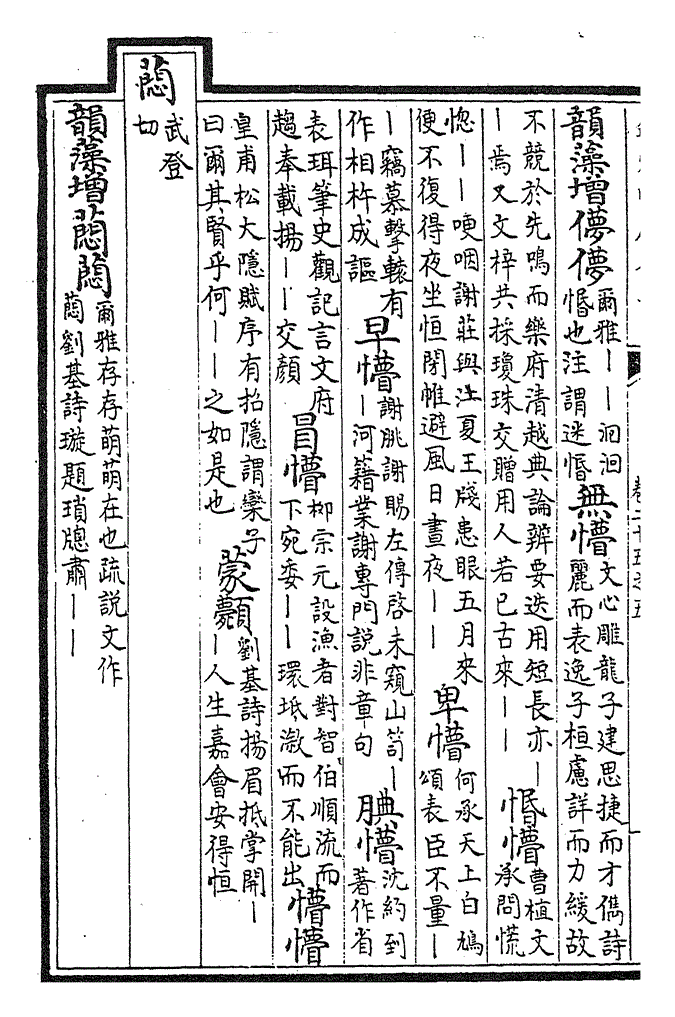 韻藻增儚儚
爾雅丨丨洄洄
惛也注謂迷惛
無懵
文心雕龍子建思捷而才儁詩
麗而表逸子桓慮詳而力緩故
不競於先鳴而樂府清越典論辨要迭用短長亦丨
丨焉又文梓共採瓊珠交贈用人若已古來丨丨
惛懵
曹植文
承問慌
惚丨丨哽咽謝莊與江夏王牋患眼五月來
便不復得夜坐恒閉帷避風日晝夜丨丨
卑懵
何承天上白鳩
頌表臣不量丨
丨竊慕擊轅有
作相杵成謳
早懵
謝朓謝賜左傳啓未窺山笥丨
丨河籍業謝專門説非章句
腆懵
沈約到
著作省
表珥筆史觀記言文府
趨奉載揚丨丨交顏
冒懵
柳宗元設漁者對智伯順流而
下宛委丨丨環坻漵而不能出
懵懵
皇甫松大隱賦序有招隱謂欒子
曰爾其賢乎何丨丨之如是也
蒙顭
劉基詩揚眉抵掌開丨
丨人生嘉會安得恒
蕄
武登
切
韻藻增蕄蕄
爾雅存存萌萌在也疏説文作
蕄劉基詩璇題瑣牕肅丨丨